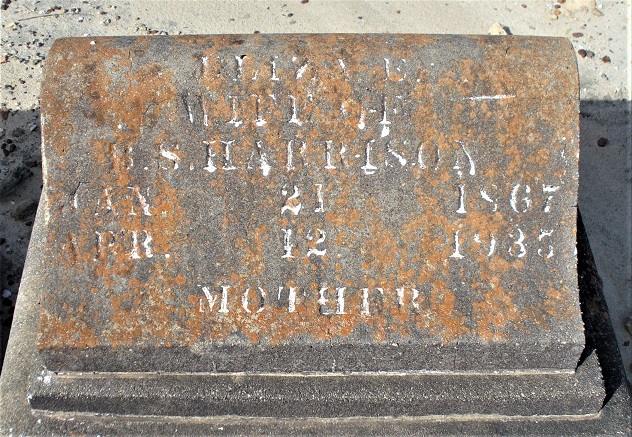 ELIZA E.
WIFE OF
S. HARRISON
JAN. 21 1867
APR. 12. 1935
MOTHER